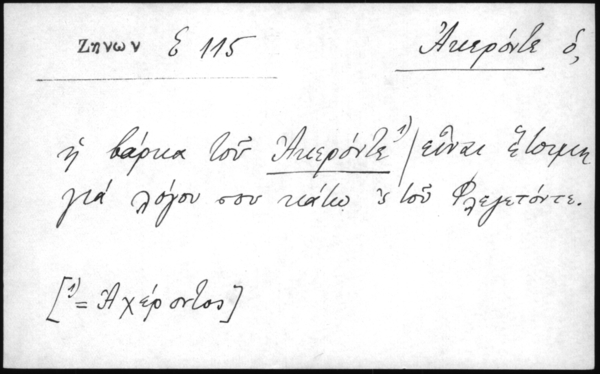 Ζηνων Ε 115 Ἀκερόντε ὁ,
ἡ βάρκα τοῦ Ἀκερόντε¹⁾/εἶναι ἕτοιμη
γιὰ λόγου σου κάτω ς τοῦ Φλεγετόντε.
[¹⁾= Ἀχέροντος]